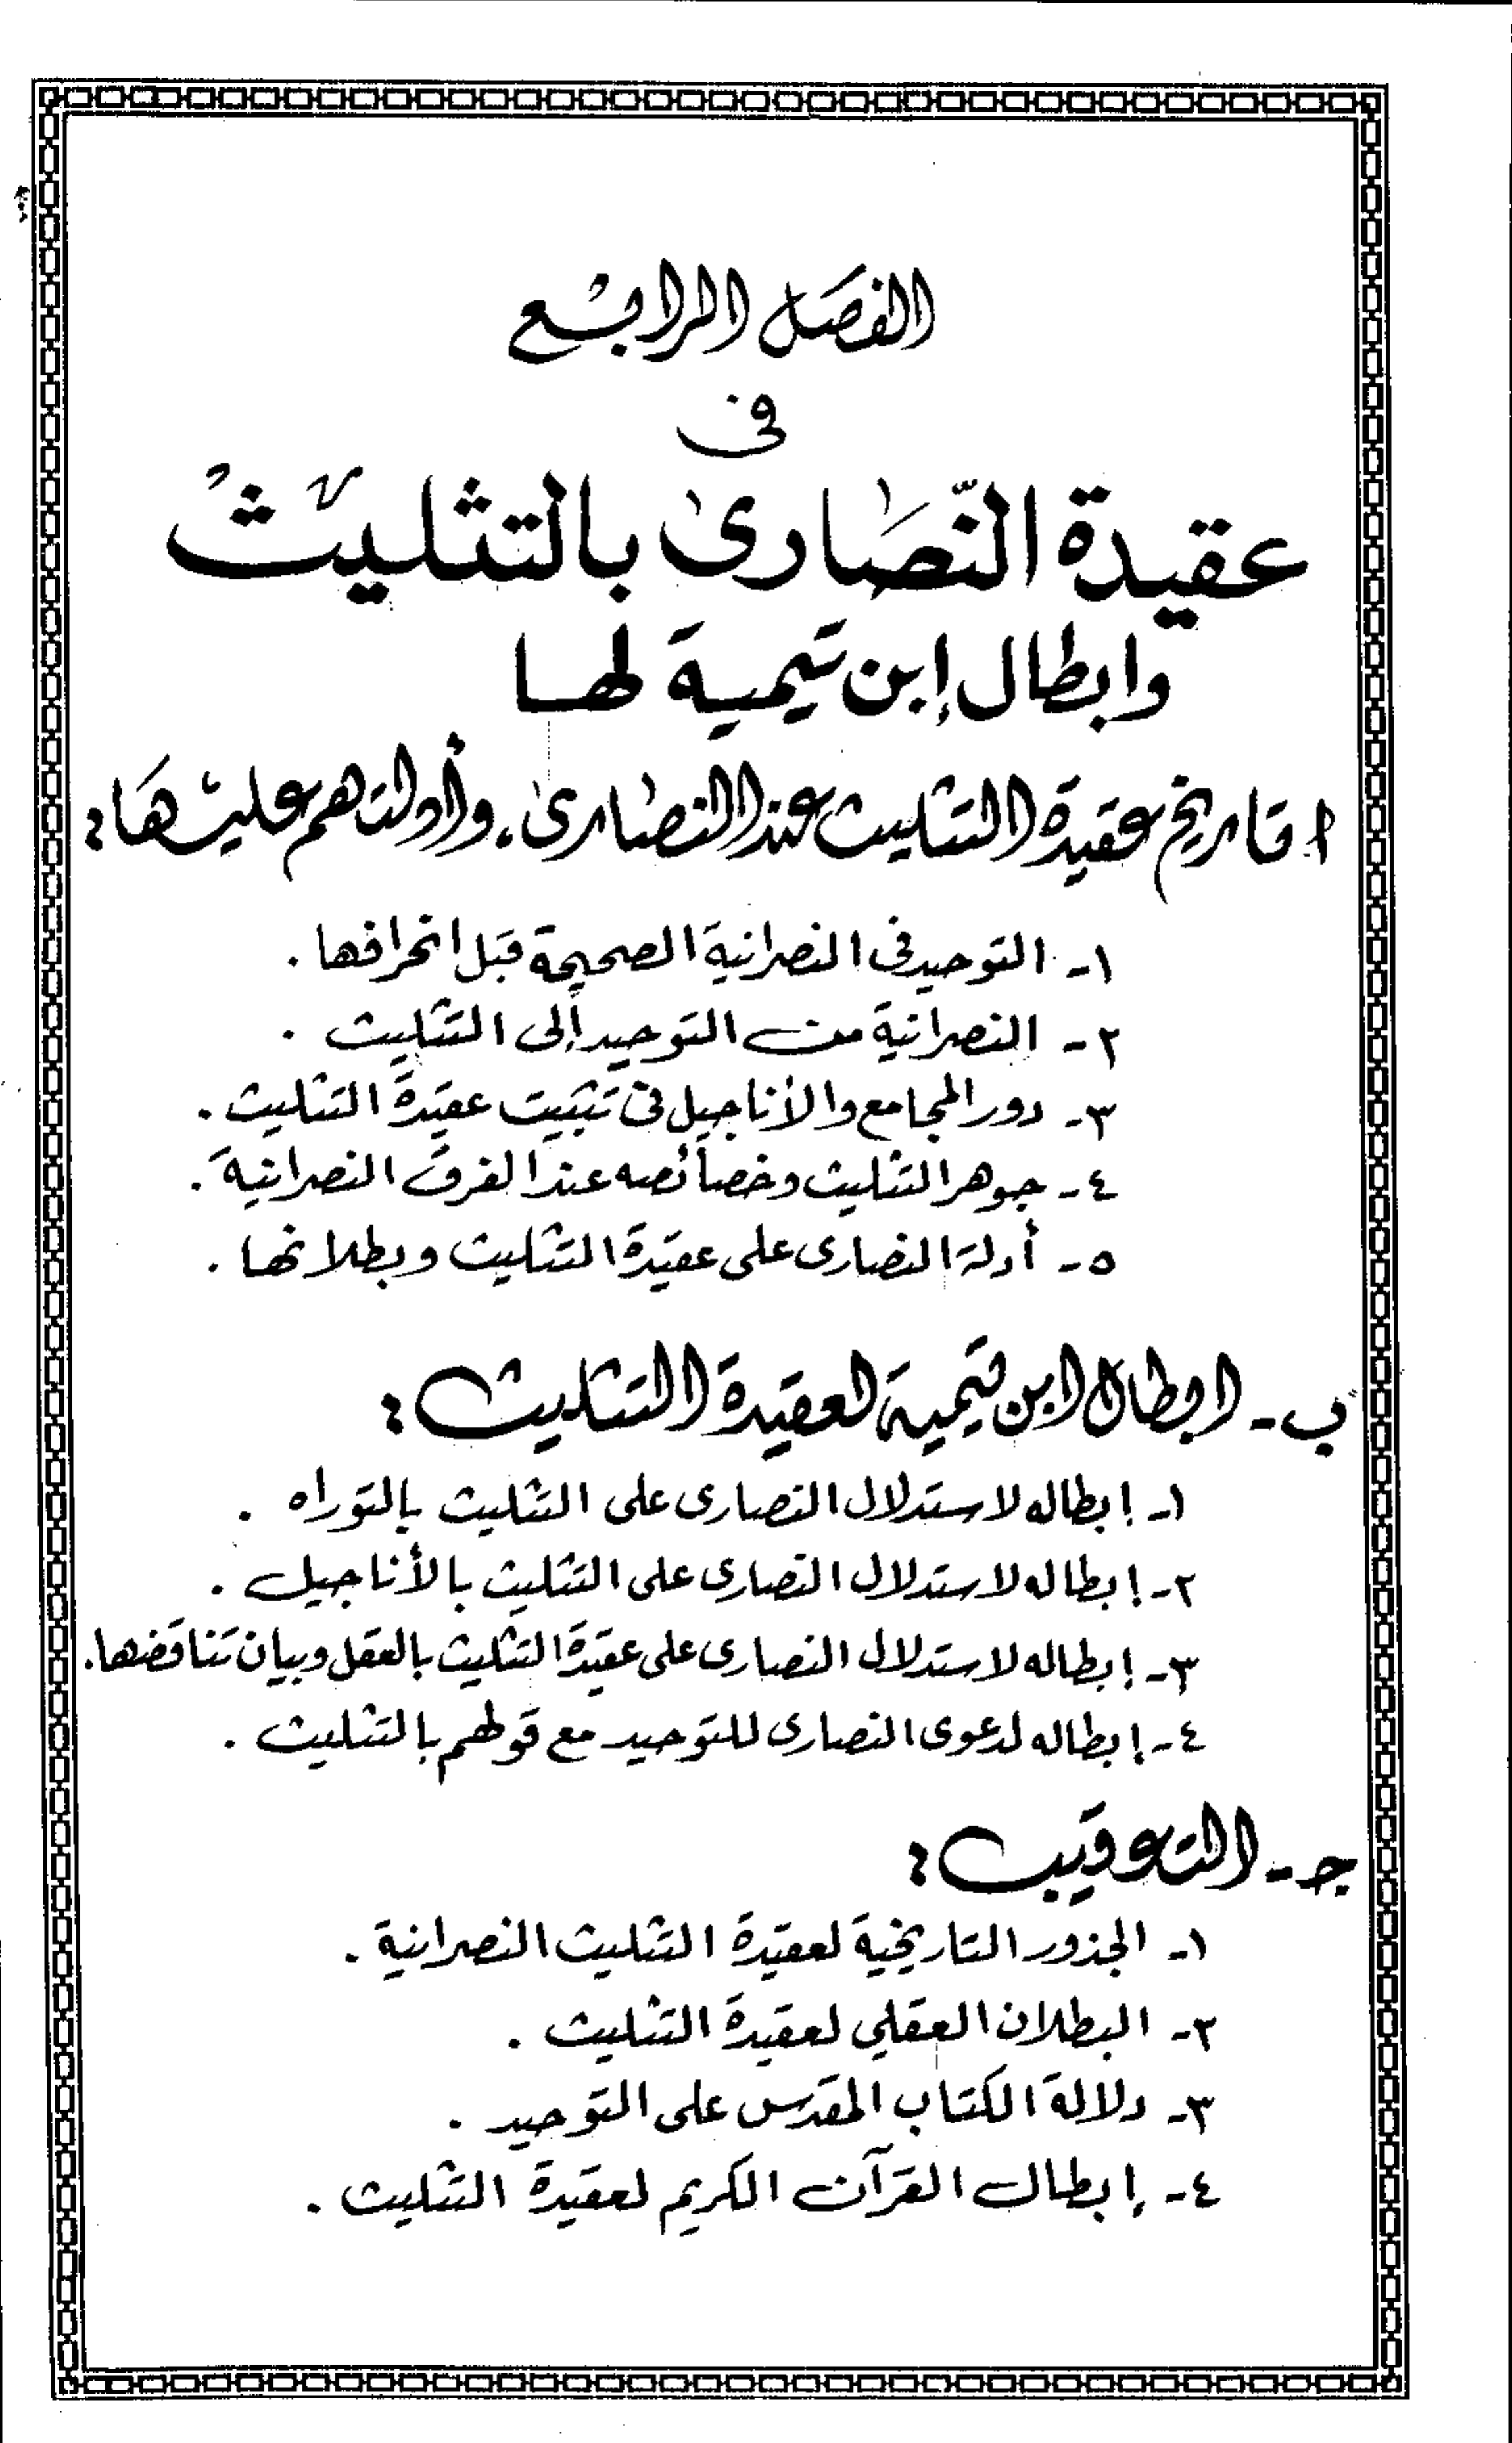 الفصل الرابع
فى
عقيدة النّصَارى بالتثليث
وابطال إبن تيمية لها
ا تاريخ عقيدة التثليث عند النصارى، وأدلتهم عليهَا:
١- التوحيد فى النصرانية الصحيحة قبل انحرافها .
٢- النصرانية من التوحيد إلى التثليث .
٣- دور المجامع والأناجيل فى تثبيت عقيدة التثليث .
٤- جوهر التثليث وخصائصه عند الفرق النصرانية .
٥- أدلة النصارى على عقيدة التثليث وبطلانها .
ب- ابطال ابن تيمية لعقيدة التثليث :
١- إبطاله لاستدلال النصارى على التثليث بالتوراه .
٢- إبطاله لاستدلال النصارى على التثليث بالأناجيل .
٣- إبطاله لاستدلال النصارى على عقيدة التثليث بالعقل وبيان تناقضها.
٤- إبطاله لدعوى النصارى للتوحيد مع قولهم بالتثليث .
جـ - التعقيب :
١- الجذور التاريخية لعقيدة التثليث النصرانية .
٢- البطلان العقلي لعقيدة التثليث .
٣- دلالة الكتاب المقدس على التوحيد .
٤- إبطال القرآن الكريم لعقيدة التثليث .